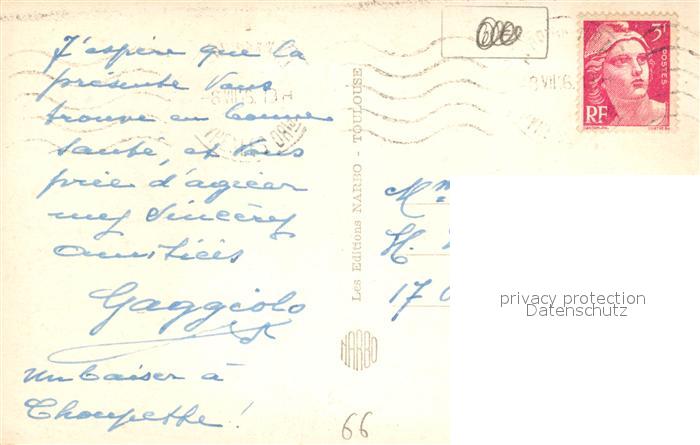 J'espère que la
présente vous
trouve en bonne
santé, et vous
prie d'agréer
mes sincères
amitiés
Gaggiolo
un baiser à
Choupette !
Les Editions NARBO - TOULOUSE
NARBO
66
3F
POSTES
RF
M
H.
17
privacy protection
Datenschutz